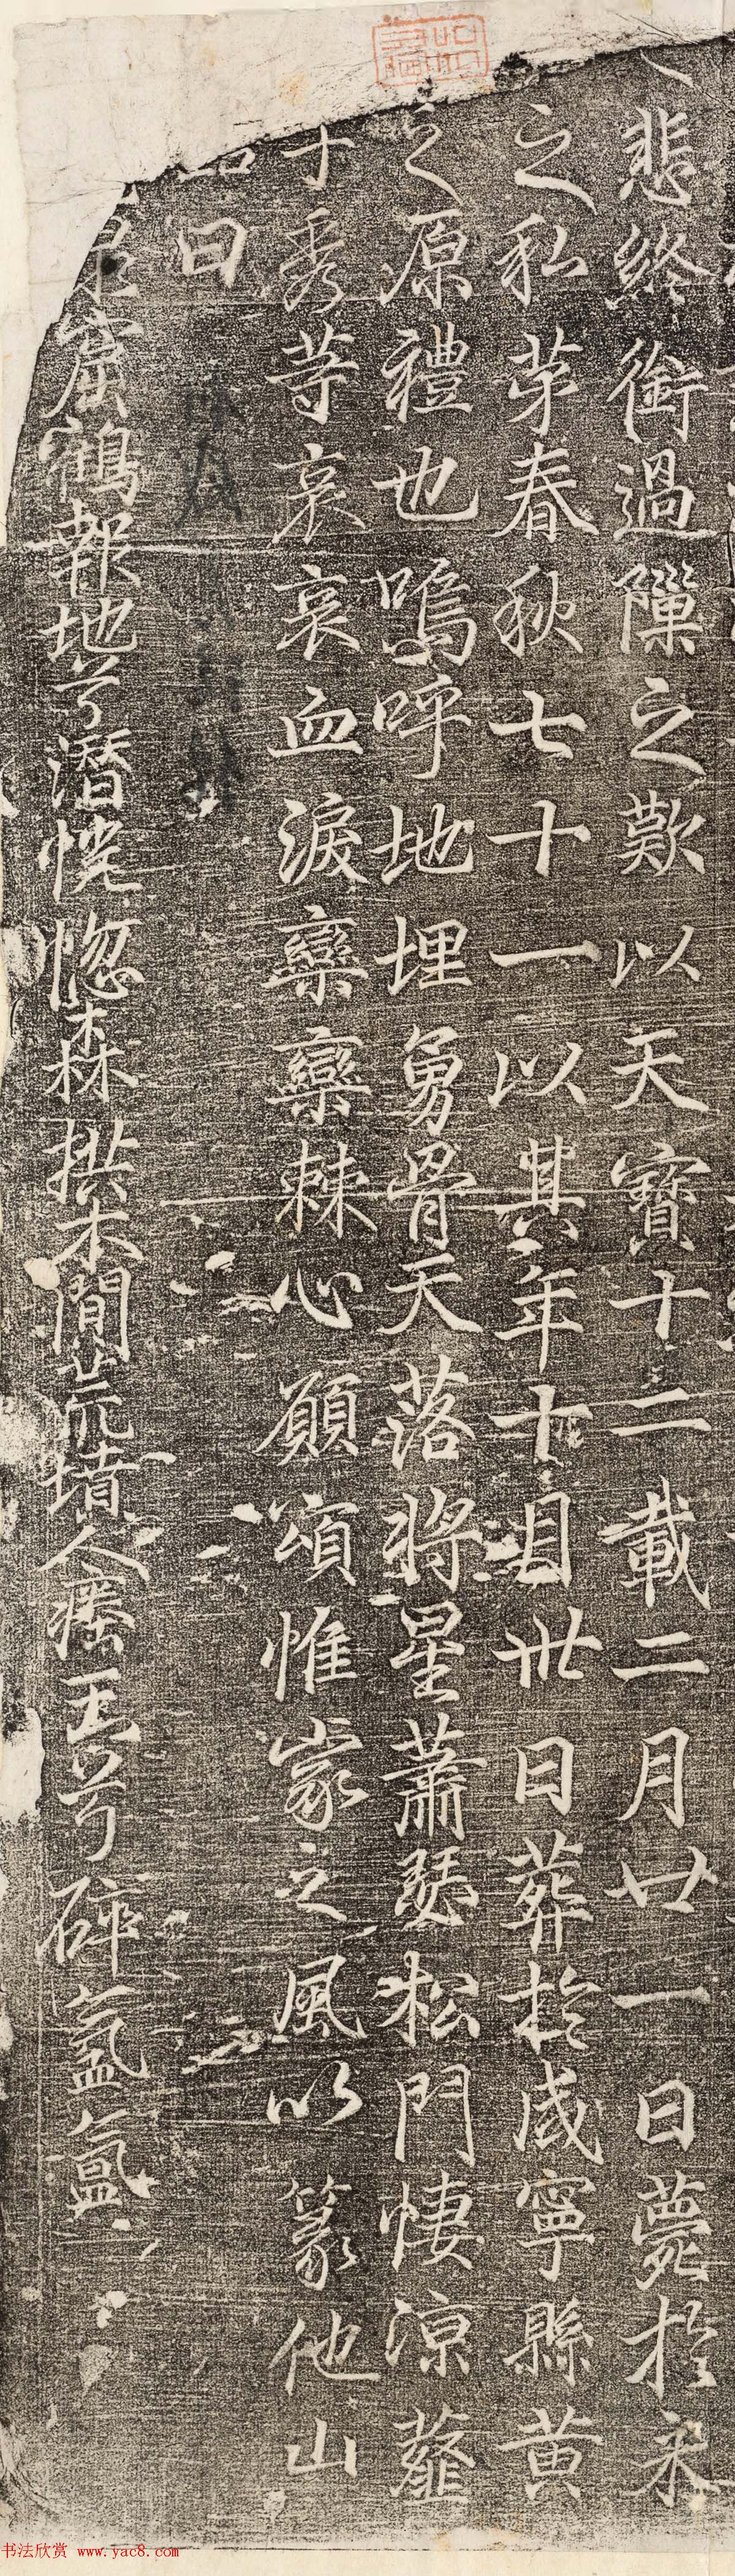 悲终銜過隟之歎以天寶十二載二月廿一日薨於永
之私第春秋七十一以其年十月卅日葬於咸寧縣黄
之原禮也嗚呼地埋勇骨天落將星蕭瑟松門悽涼薤
秀等哀哀血淚欒欒棘心願頌惟家之風以篆他山
曰
窟鶴報地兮潛恍惚森拱木間荒墳人瘞玉兮碎氳氳
书法欣赏 www.yac8.com